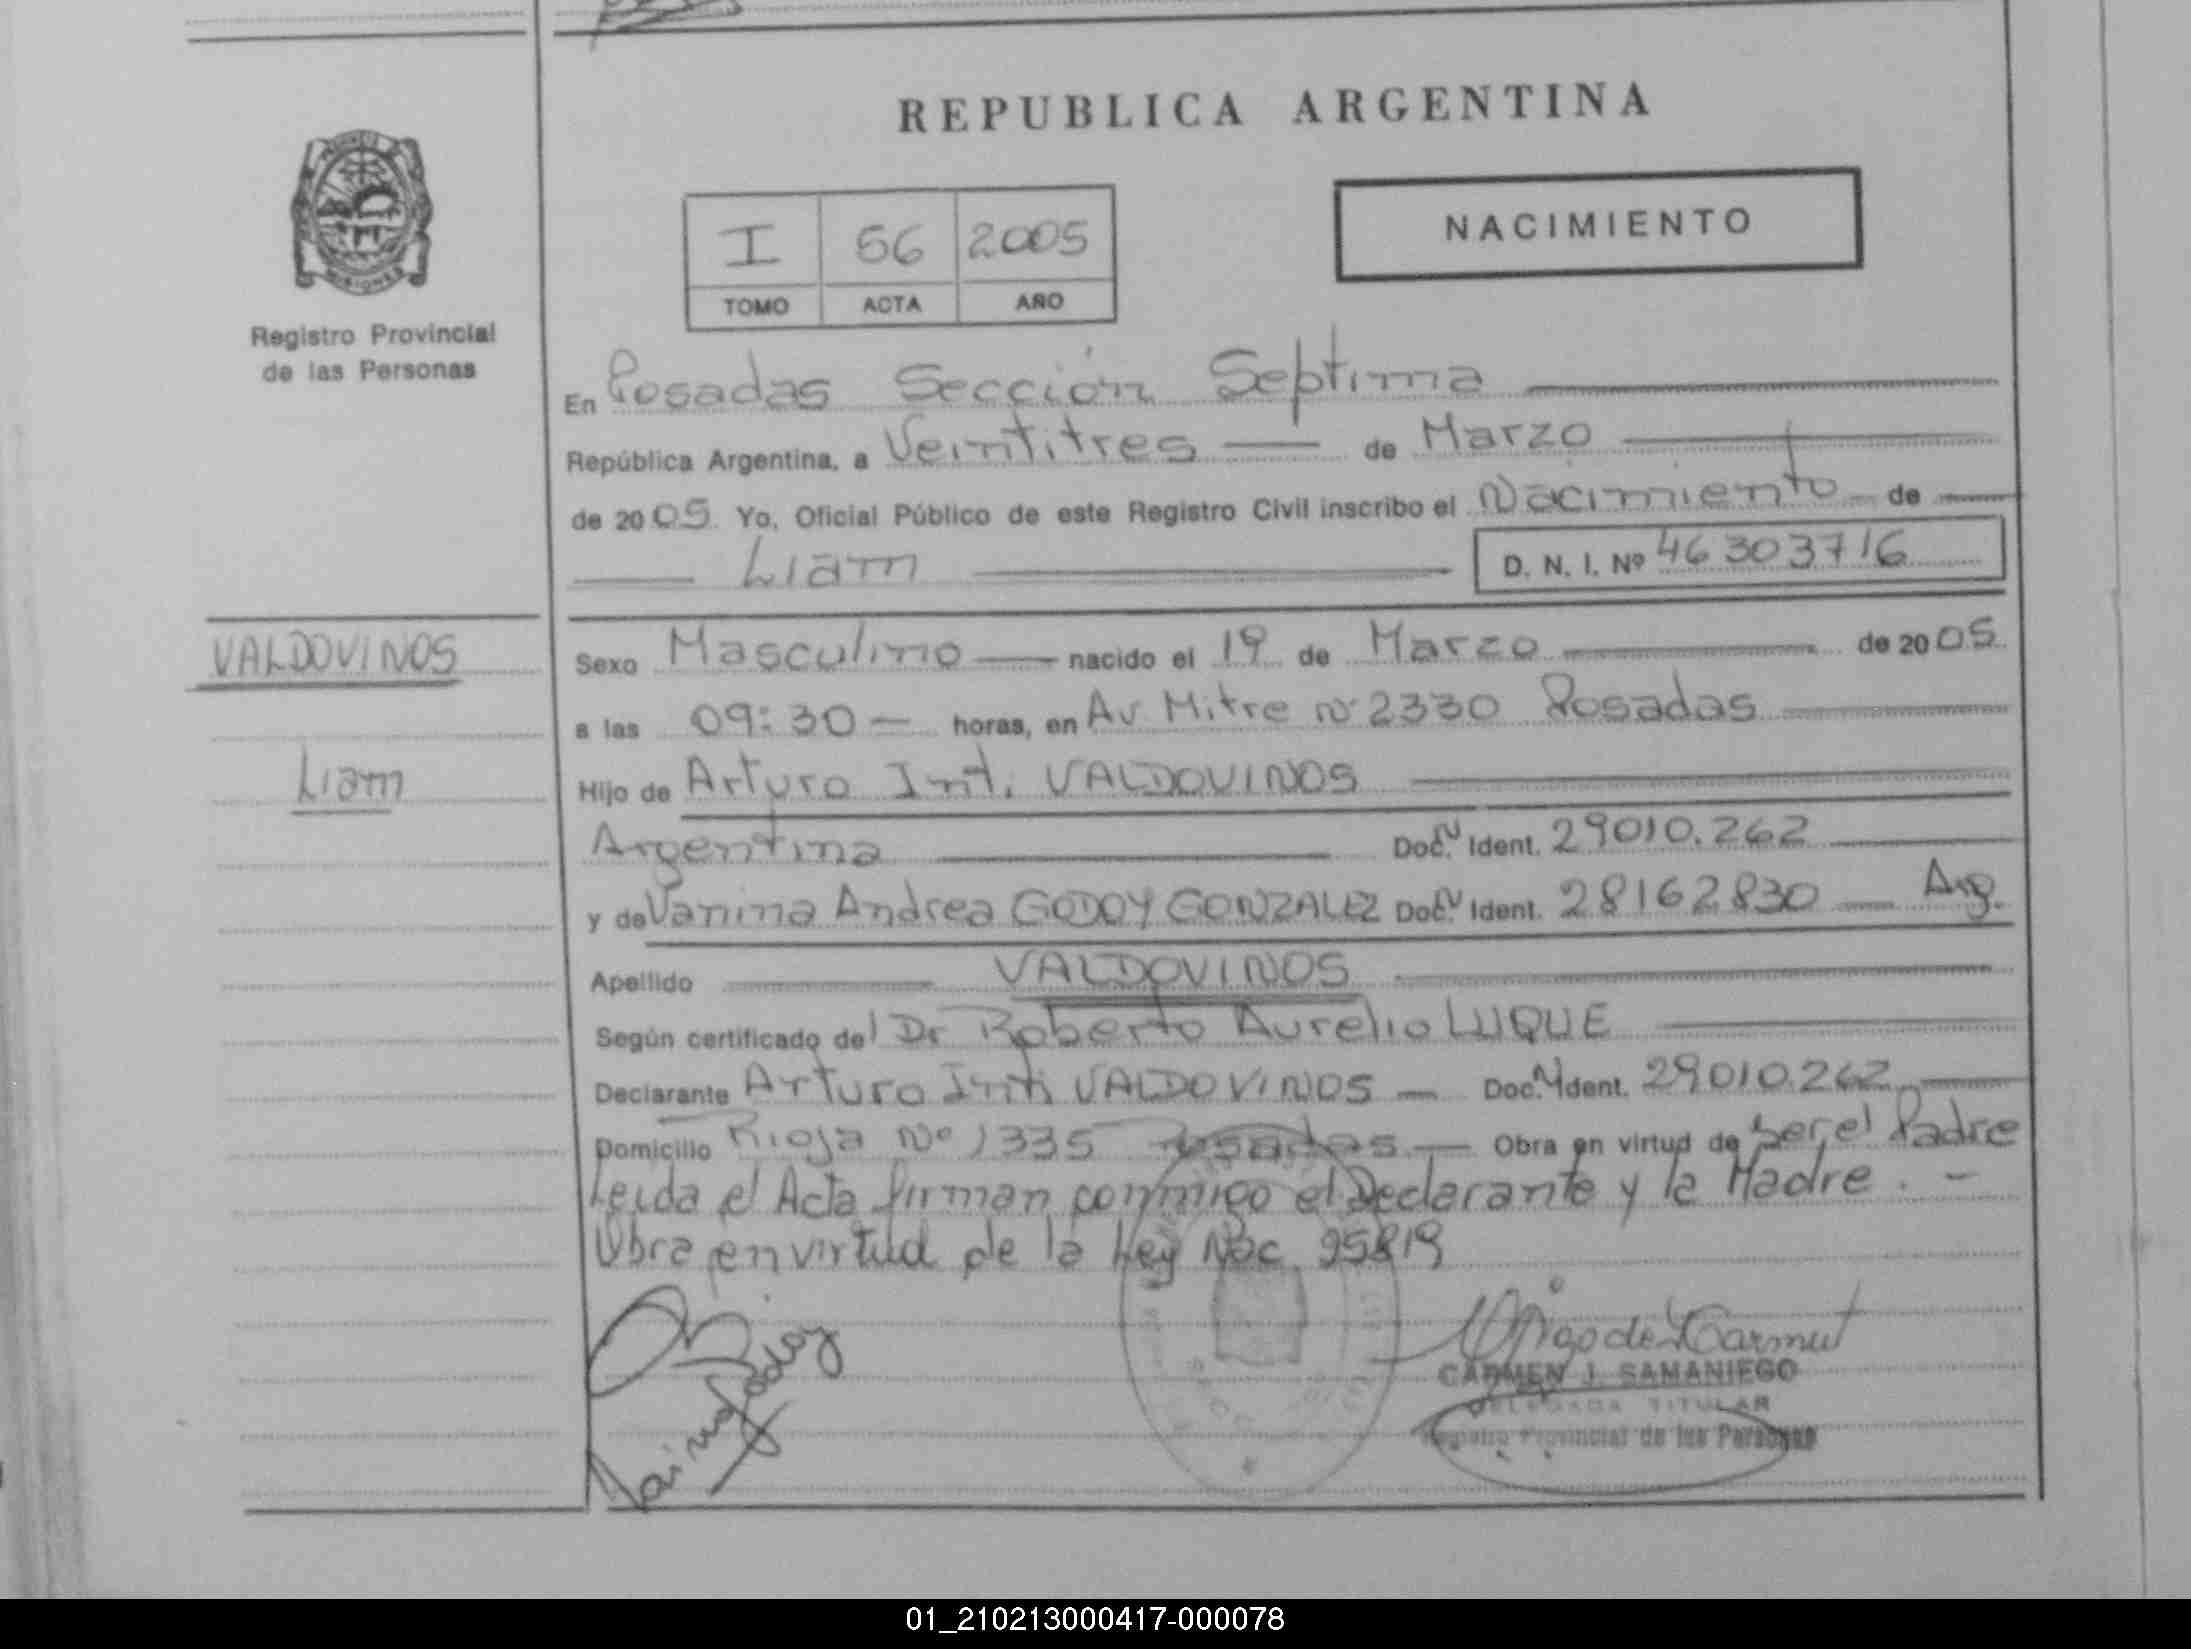 REPUBLICA ARGENTINA
NACIMIENTO
I 56 2005
TOMO ACTA AÑO
MISIONES
Registro Provincial
de las Personas
En Posadas Sección Septima
República Argentina, a Veintitres de Marzo
de 2005 Yo, Oficial Público de este Registro Civil inscribo el Nacimiento de
Liam D. N. I. Nº 46303716
VALDOVINOS
Liam
Sexo Masculino nacido el 19 de Marzo de 2005
a las 09:30 horas, en Av Mitre Nº 2330 Posadas
Hijo de Arturo Inti VALDOVINOS
Argentina Doc. N Ident. 29010.262
y de Vanina Andrea GODOY GONZALEZ Doc. N Ident. 28162830 Arg.
Apellido VALDOVINOS
Según certificado del Dr Roberto Aurelio LUQUE
Declarante Arturo Inti VALDOVINOS Doc. N Ident. 29010.262
Domicilio Rioja Nº 1335 Posadas Obra en virtud de ser el Padre
Leida el Acta firman conmigo el Declarante y la Madre. -
Obra en virtud de la Ley Nac 25819
CARMEN J. SAMANIEGO
DELEGADA TITULAR
Registro Provincial de las Personas
01_210213000417-000078